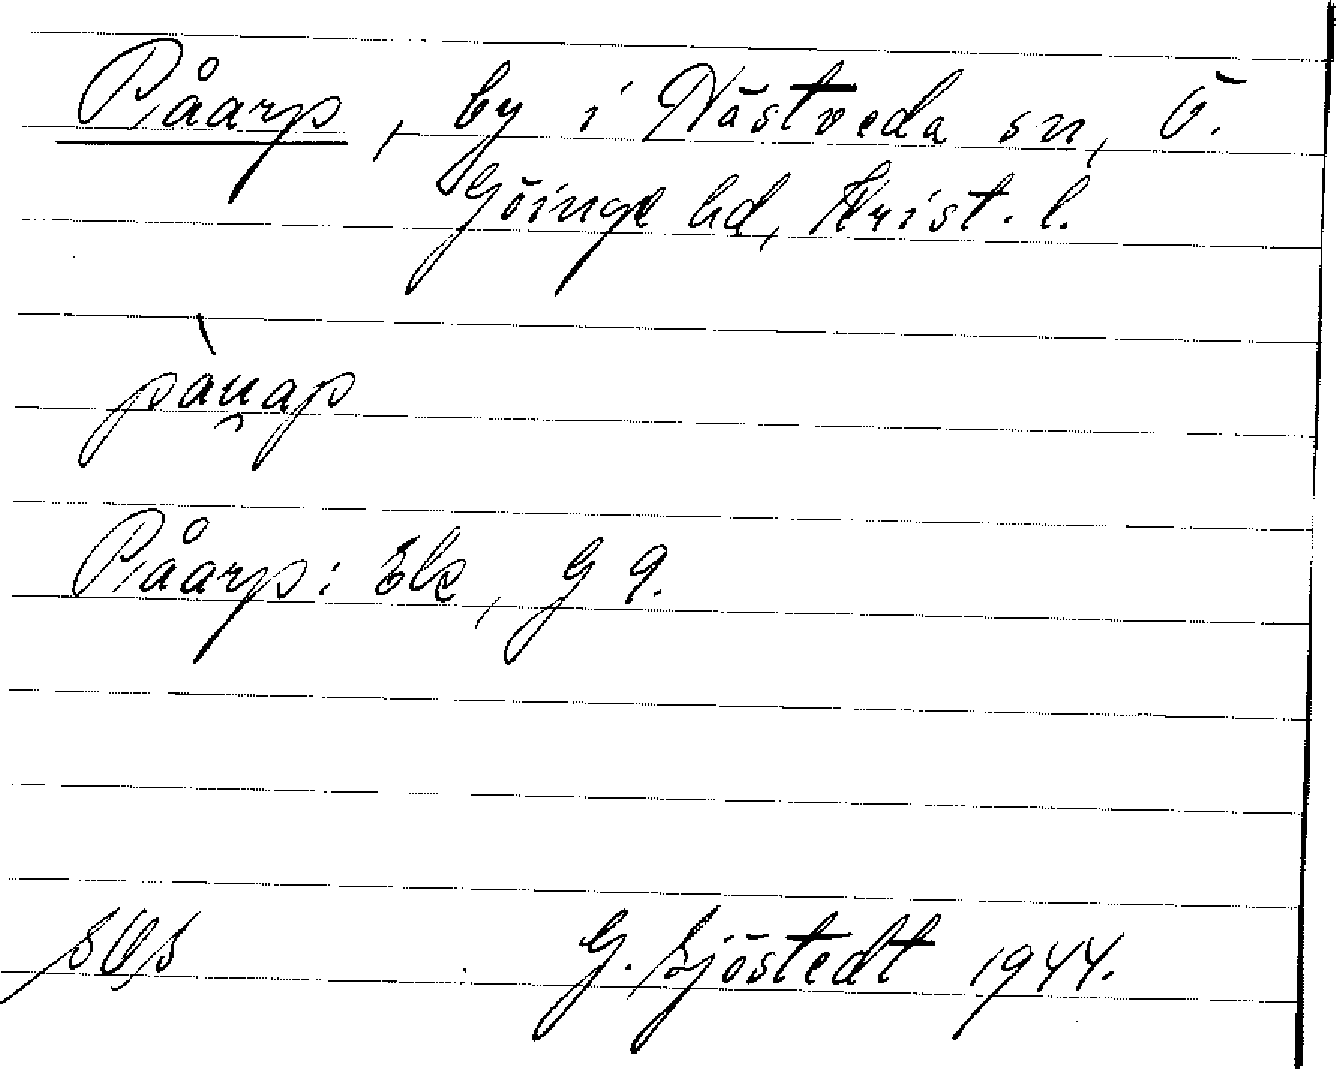 Påarp, by i Nästveda sn, Ö.
Göinge hd, Krist. l.
pàu̯ap
Påarp: Ek, G 9.
G. Sjöstedt 1944.